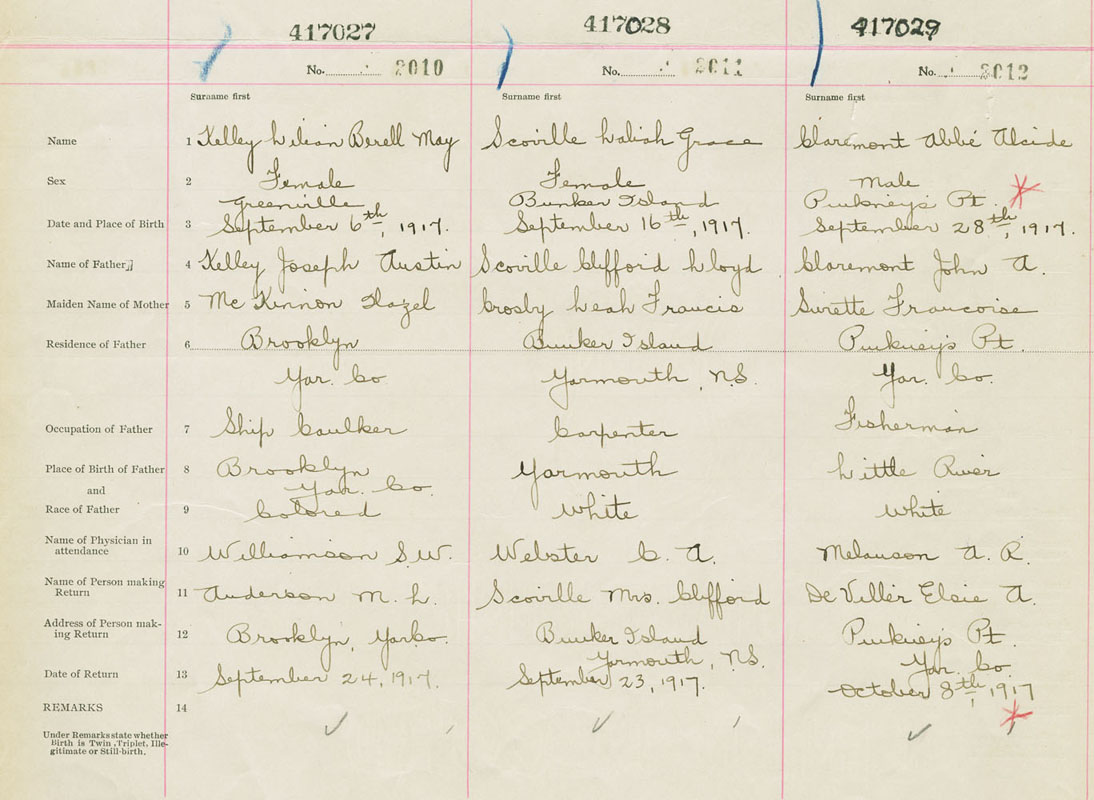 417027 417028 417029
No. 2010 No. 2011 No. 2012
Surname first Surname first Surname first
Name 1 Kelley Lilian Berell May Scoville Laliah Grace Claremont Abbé Alcide
Sex 2 Female Female Male
Greenville Bunker Island Pinkney's Pt.
Date and Place of Birth 3 September 6th, 1917. September 16th, 1917. September 28th, 1917.
Name of Father 4 Kelley Joseph Austin Scoville Clifford Lloyd Claremont John A.
Maiden Name of Mother 5 Mc Kinnon Hazel Crosby Leah Francis Surette Francoise
Residence of Father 6 Brooklyn Bunker Island Pinkney's Pt.
Yar. Co Yarmouth, N.S. Yar. Co.
Occupation of Father 7 Ship Caulker Carpenter Fisherman
Place of Birth of Father 8 Brooklyn Yarmouth Little River
and Yar. Co.
Race of Father 9 Colored White White
Name of Physician in
attendance 10 Williamson S.W. Webster C. A. Melanson A. R.
Name of Person making
Return 11 Anderson M. L. Scoville Mrs. Clifford De Viller Elsie A.
Address of Person mak-
ing Return 12 Brooklyn, Yar Co. Bunker Island Pinkney's Pt.
Yarmouth, N.S. Yar. Co.
Date of Return 13 September 24, 1917. September 23, 1917. October 8th, 1917
REMARKS 14
Under Remarks state whether
Birth is Twin, Triplet, Ille-
gitimate or Still-birth.